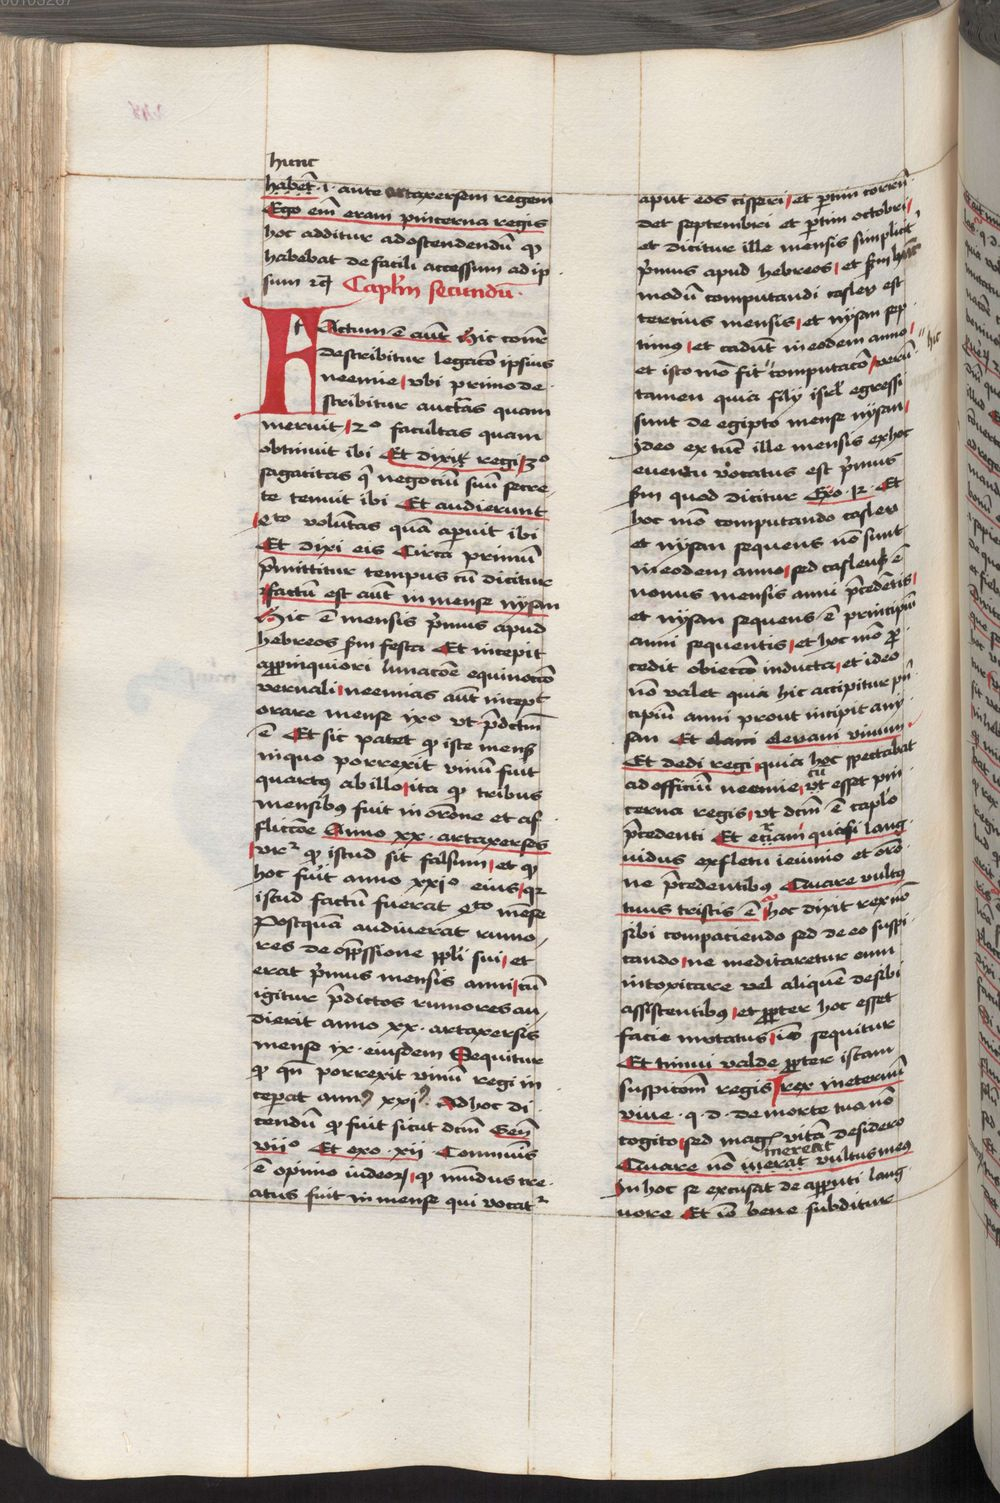 hunc
habet̄ · i · ante artaxersem regem
Ego em̄ eram pincerna regis
hoc additur ad ostendendū ꝙ
habebat de facili accessum ad ip
sum ⁊cͣ Caplm̄ secundū ·
Factum ē aut̄ Hic
describitur legacō ipsius
neemie / vbi primo de ·
scribitur auctͣas quam
meruit / 2º facultas quam
obtinuit ibi Et dixit regi / 3º
sagacitas q̄ negociū suū secre-
te tenuit ibi Et audierunt
qͣto volūtas quā aperuit ibi
Et dixi eis Circa primū
p̄mittitur tempus cū dicitur
factū est aut̄ in mense nysan
Hic ē mensis p̄mus apud
hebreos scd̄m festa Et incepit
appinquiori lunacōe equinoccō
vernali / neemias aut̄ incepit
orare mense ixº vt p̄dictum
ē Et sic patet ꝙ iste mensꝭ
in quo porrexit vinū fuit
quartꝰ ab illo / ita ꝙ tribus
mensibꝰ fuit in orōne et af
fliccōe Anno xx · artaxerses
vr̄ ꝙ istud sit falsum / et ꝙ
hoc fuit anno xxiº eius / qr
istud factū fuerat qͣto mēse
Postquā audiuerat rumo /
res de opp̄ssione ppli sui / et
erat p̄mus mensis anni / cū
igitur p̄dictos rumores au /
dierit anno xx · artaxersis
mense ix · eiusdem Sequitur
ꝙ qn̄ porrexit vinū regi in
ceperat annꝰ xxiꝰ · Ad hoc di ·
cendū ꝙ fuit sicut dcm̄ Gen̄
viiº Et exo · xii · Communis
ē opinio iudeoꝝ / ꝙ mūdus cre ·
atus fuit in mense qui vocat̄
aput eos tisseri / et p̄tim corrn̄
det septembri et p̄tim octobri /
et dicitur ille mensis simplicit̄
p̄mus apud hebreos / et scd̄m hunc
modū computandi casleu est
tercius mensis / et nysan sep
timꝰ / et cadūt in eodem anno /
et isto mō fit computacō / verū
hic
tamen quia filij isrl̄ egressi
sunt de egipto mense nysan /
ydeo ex tūc ille mensis ex hoc
euentu vocatus est p̄mus
scd̄m quod dicitur Exo · 12 · Et
hoc mō computando casleu
et nysan sequens nō sunt
in eodem anno / sed casleuꝭ ē
nonus mensis anni p̄cedentis /
et nysan sequens ē principiū
anni sequentis / et hoc mō p̄
cedit obieccō inducta / et ideo
nō valet quia hic accipitur pn̄
cipiū anni prout incipit a ny
san Et leuaui vinum
Et dedi regi quia hoc spectabat
ad officiū neemie / cū vt esset pin
cerna regis / vt dcm̄ ē caplo
p̄cedenti Et eram quasi lang
uidus ex fletu ieiunio et orō
ne p̄cedentibꝰ Quare vultꝰ
tuus tristis ē hoc dixit rex nō
sibi compaciendo sed de eo suspi
cando / ne meditaretur eum
intoxicare vel aliquē de sibi
assistentibꝰ / et ppter hoc esset
facie mutatus / iō sequitur
Et timui valde ppter istam
suspicōm̄ regis / rex in eternū
viue · q · d · de morte tua nō
cogito / sed magꝭ vitā desidero
mereat
Quare nō merat vultus meꝰ
In hoc se excusat de apparenti lang
uore Et iō bene subditur